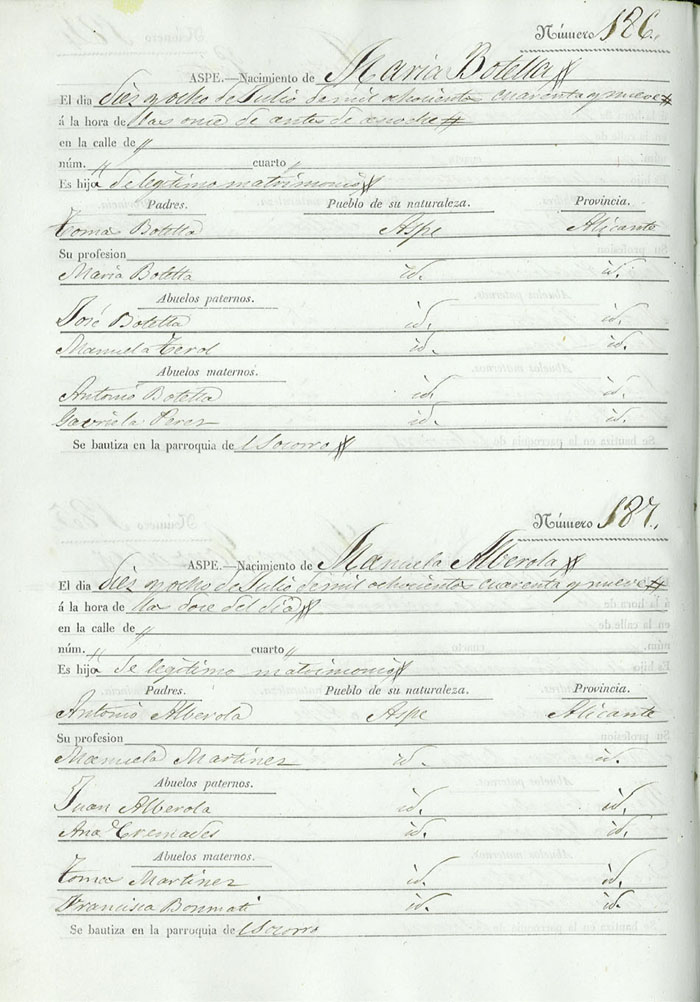 Número 186.
ASPE.—Nacimiento de Maria Botella
El dia diez y ocho de Julio de mil ochocientos cuarenta y nueve
á la hora de las once de antes de anoche
en la calle de "
núm. " cuarto "
Es hija de legitimo matrimonio
Padres. Pueblo de su naturaleza. Provincia.
Toma Botella Aspe Alicante
Su profesion
Maria Botella id. id.
Abuelos paternos.
José Botella id. id.
Manuela Terol id. id.
Abuelos maternos.
Antonio Botella id. id.
Gavriela Perez id. id.
Se bautiza en la parroquia de l Socorro
Número 187.
ASPE.—Nacimiento de Manuela Alberola
El dia diez y ocho de Julio de mil ochocientos cuarenta y nueve
á la hora de las doce del dia
en la calle de "
núm. " cuarto "
Es hija de legitimo matrimonio
Padres. Pueblo de su naturaleza. Provincia.
Antonio Alberola Aspe Alicante
Su profesion
Manuela Martinez id. id.
Abuelos paternos.
Juan Alberola id. id.
Ana Cremades id. id.
Abuelos maternos.
Toma Martinez id. id.
Francisca Bonmati id. id.
Se bautiza en la parroquia de l Socorro